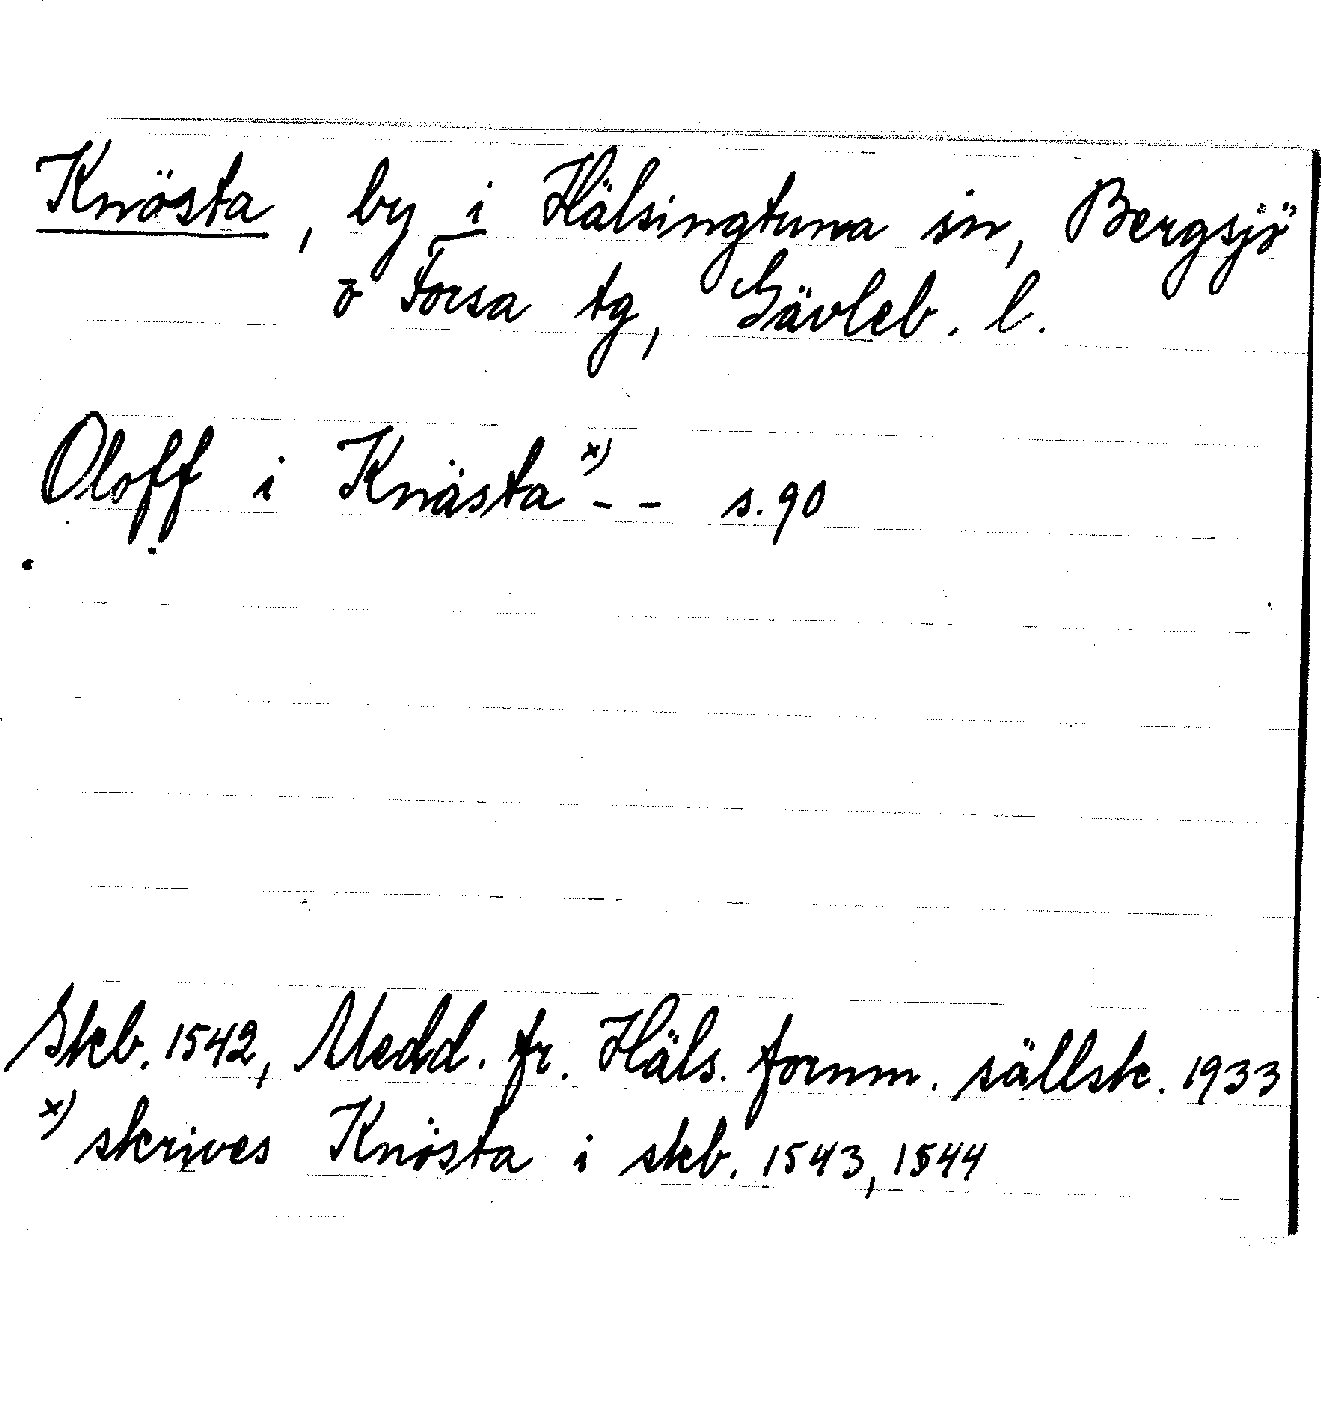 Knösta, by i Hälsingtuna sn, Bergsjö
o Forsa tg, Gävleb. l.
Oloff i Knästa x) - - s. 90
Skb. 1542, Medd. fr. Häls. fornm. sällsk. 1933
x) skrives Knösta i skb. 1543, 1544